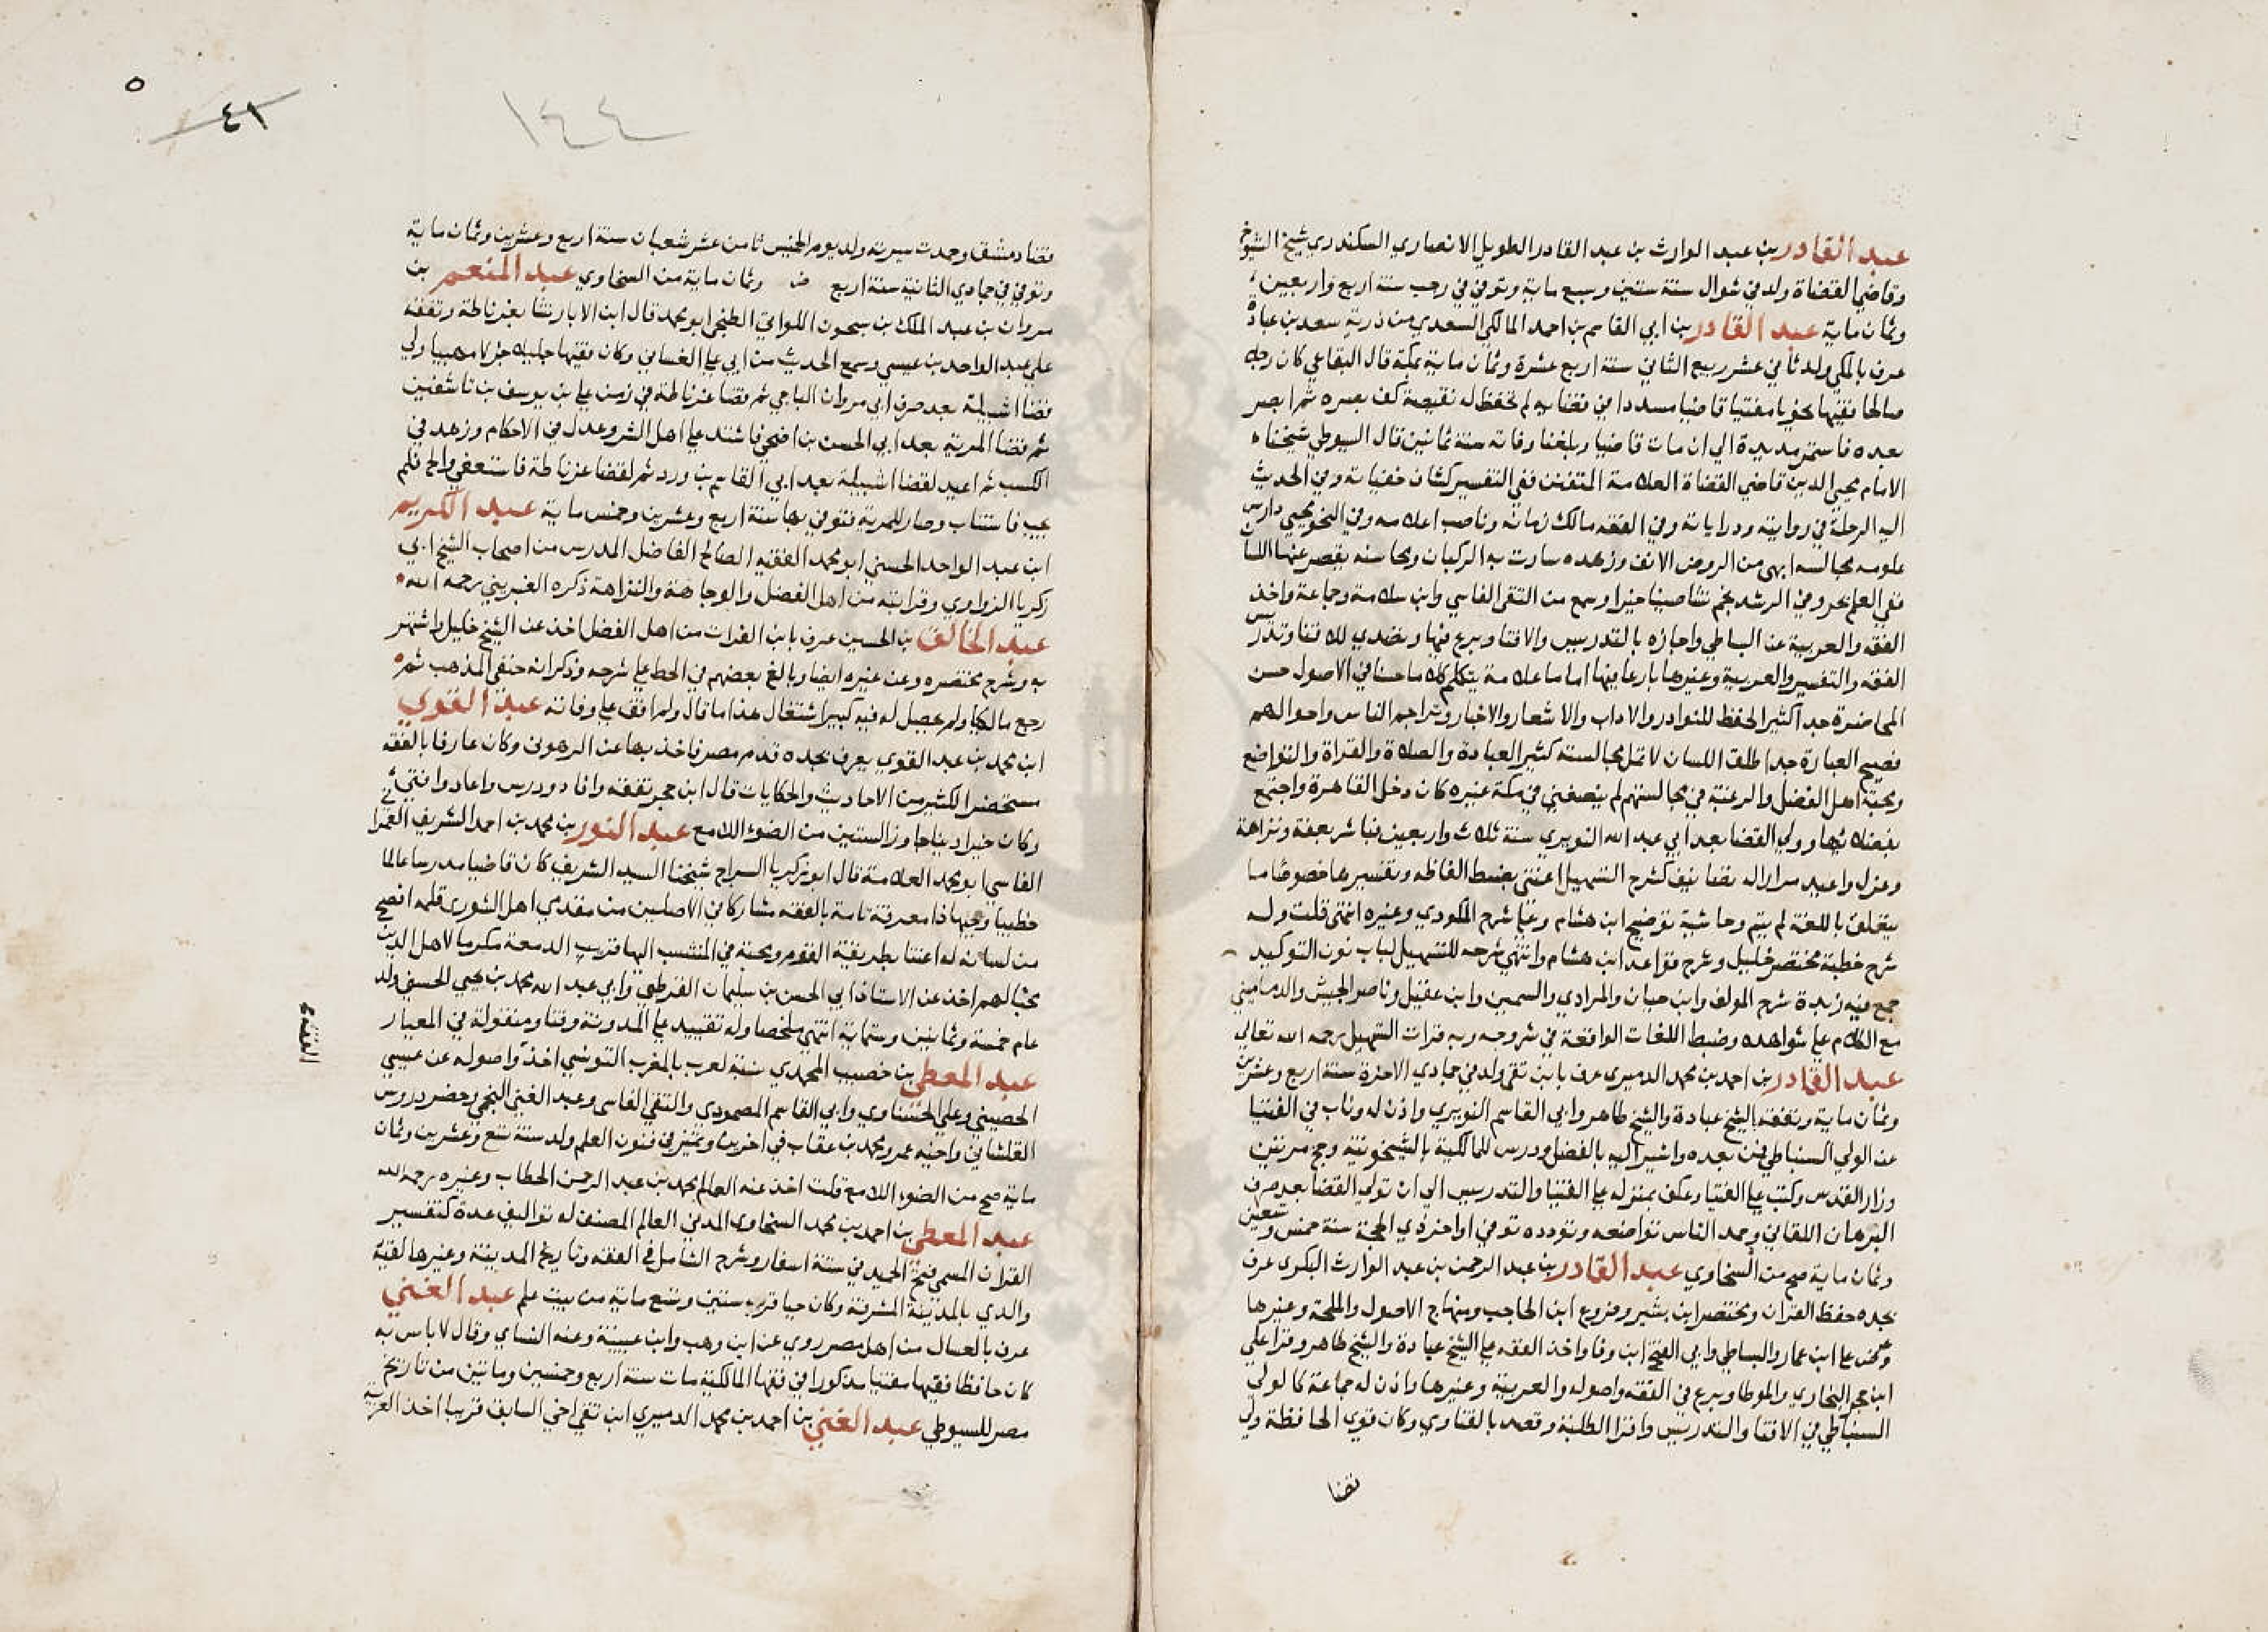 عبد القادر بن عبد الوارث بن عبد القادر الطويل الانصاري السكندري شيخ الشيوخ
وقاضي القضاة ولد في شوال سنة ستين وسبع ماية وتوفي في رجب سنة اربع واربعين
وثمان ماية عبد القادر بن ابي القاسم بن احمد المالكي السعدي من ذرية سعد بن عبادة
عرف بالمكي ولد ثاني عشر ربيع الثاني سنة اربع عشرة وثمان ماية بمكة قال البقاعي كان رجلا
صالحا فقيها نحويا مفتيا قاضيا مسددا في قضايه لم تحفظ له نقيصة كف بصره ثم ابصر
بعده فاستمر مديدة الي ان مات قاضيا وبلغنا وفاته سنة ثمانين قال السيوطي شيخنا
الامام محيي الدين قاضي القضاة العلامة المتفنن ففي التفسير كشاف خفياته وفي الحديث
اليه الرحلة في رواياته ودراياته وفي الفقه مالك زمانه وناصب اعلامه وفي النحو محيي دارس
علومه مجالسه ابهى من الروض الانف وزهده سارت به الركبان ومحاسنه يقصر عنها اللسان
ففي العلم بحر وفي الرشد نجم نشا صينا خيرا وسمع من التقي الفاسي وابن سلامة وجماعة واخذ
الفقه والعربية عن البساطي واجازه بالتدريس والافتا وبرع فيها وتصدي للافتا وتدريس
الفقه والتفسير والعربية وغيرها بارعا فيها اماما علامة يتكلم كلاما حسنا في الاصول حسن
المحاضرة جدا كثير الحفظ للنوادر والاداب والاشعار والاخبار وتراجم الناس واحوالهم
فصيح العبارة جدا طلق اللسان لا تمل مجالسته كثير العبادة والصلاة والقراة والتواضع
ومحبة اهل الفضل والرغبة في مجالستهم لم ينصفني في مكة غيره كان دخل القاهرة واجتمع
بفضلائها وولي القضا بعد ابي عبد الله النويري سنة ثلاث واربعين فباشر بعفة ونزاهة
وعزل واعيد مرارا له تصانيف كشرح التسهيل اعتنى بضبط الفاظه وتفسيرها خصوصا ما
يتعلق باللغة لم يتم وحاشية توضيح ابن هشام وعلي شرح المكودي وغيره انتهى قلت وله
شرح خطبة مختصر خليل وشرح قواعد ابن هشام وانتهي شرحه للتسهيل لباب نون التوكيد
جمع فيه زبدة شرح المولف وابن حيان والمرادي والسمين وابن عقيل وناصر الجيش والدماميني
مع الكلام علي شواهده وضبط اللغات الواقعة في شروحه وبه قرات التسهيل رحمه الله تعالي
عبد القادر بن احمد بن محمد الدميري عرف بابن تقي ولد في جمادي الاخرة سنة اربع وعشرين
وثمان ماية وتفقه بالشيخ عبادة والشيخ طاهر وابي القاسم النويري واذن له وناب في الفتيا
عن الولي السنباطي فمن بعده واشير اليه بالفضل ودرس للمالكية بالشيخونية وحج مرتين
وزار القدس وكتب علي الفتيا وعكف بمنزله علي الفتيا والتدريس الي ان تولي القضا بعد صرف
البرهان اللقاني وحمد الناس تواضعه وتودده توفي اواخر ذي الحجة سنة خمس وتسعين
وثمان ماية صح من السخاوي عبد القادر بن عبد الرحمن بن عبد الوارث البكري عرف
بجده حفظ القران ومختصر ابن بشير وفروع ابن الحاجب ومنهاج الاصول والملحة وغيرها
وعرض علي ابن عمار والبساطي وابي الفتح ابن وفا واخذ الفقه علي الشيخ عبادة والشيخ طاهر وقرا علي
ابن حجر البخاري والموطا وبرع في الفقه واصوله والعربية وغيرها واذن له جماعة كالولي
السنباطي في الافتا والتدريس واقرا الطلبة وقصد بالفتاوي وكان قوي الحافظة ولي
قضا
٥
٤١
١٤٤
قضا دمشق وحمدت سيرته ولد يوم الخميس ثامن عشر شعبان سنة اربع وعشرين وثمان ماية
وتوفي في جمادي الثانية سنة اربع وثمان ماية من السخاوي عبد المنعم بن
مروان بن عبد الملك بن سمجون اللواتي الطنجي ابو محمد قال ابن الابار نشا بغرناطة وتفقه
علي عبد الواحد بن عيسي وسمع الحديث من ابي علي الغساني وكان فقيها جليلا جزلا مهيبا ولي
قضا اشبيلية بعد صرف ابي مروان الباجي ثم قضا غرناطة في زمن علي بن يوسف بن تاشفين
ثم قضا المرية بعد ابي الحسن بن اضحي فاشتد علي اهل الشر وعدل في الاحكام وزهد في
الكسب ثم اعيد لقضا اشبيلية بعد ابي القاسم بن ورد ثم لقضا غرناطة فاستعفي والح فلم
يجب فاستناب وصار للمرية فتوفي بها سنة اربع وعشرين وخمس ماية عبد الكريم
ابن عبد الواحد الحسني ابو محمد الفقيه الصالح الفاضل المدرس من اصحاب الشيخ ابي
زكريا الزواوي وقرابته من اهل الفضل والوجاهة والنزاهة ذكره الغبريني رحمه الله
عبد الخالق بن الحسين عرف بابن الفرات من اهل الفضل اخذ عن الشيخ خليل واشتهر
به وشرح مختصره وعن غيره ايضا وبالغ بعضهم في الحط علي شرحه وذكر انه حنفي المذهب ثم
رجع مالكيا ولم يحصل له فيه كبير اشتغال هذا ما قال ولم اقف علي وفاته عبد القوي
ابن محمد بن عبد القوي يعرف بجده قدم مصر فاخذ بها عن الرهوني وكان عارفا بالفقه
مستحضرا لكثير من الاحاديث والحكايات قال ابن حجر تفقه وافاد ودرس واعاد وافتي
وكان خيرا دينا جاوز الستين من الضوء اللامع عبد النور بن محمد بن احمد الشريف العمراني
الفاسي ابو محمد العلامة قال ابو زكريا السراج شيخنا السيد الشريف كان قاضيا مدرسا عالما
خطيبا وجيها ذا معرفة تامة بالفقه مشاركا في الاصلين من مقدمي اهل الشورى قلمه افصح
من لسانه له اعتنا بطريقة القوم ومحبة في المنتسب اليها قريب الدمعة مكرما لاهل الدين
محبا لهم اخذ عن الاستاذ ابي الحسن بن سليمان القرطبي وابي عبد الله محمد بن يحيي الحسني ولد
عام خمسة وثمانين وستماية انتهي ملخصا وله تقييد علي المدونة وفتاو منقولة في المعيار
عبد المعطي بن خصيب المحمدي نسبة لعرب بالمغرب التونسي اخذ واصوله عن عيسي
الفقه
الحصيني وعلي وابي القاسم المصمودي والتقي الفاسي وعبد الغني وحضر دروس
القلشاني واخيه عمر ومحمد بن عقاب في اخرين وتميز في فنون العلم ولد سنة تسع وعشرين وثمان
ماية صح من الضوء اللامع قلت اخذ عنه العالم محمد بن عبد الرحمن الحطاب وغيره رحمه الله
عبد المعطي بن احمد بن محمد السخاوي المدني العالم المصنف له تواليف عدة كتفسير
القران المسمي فتح الحميد في ستة اسفار وشرح الشامل في الفقه وتاريخ المدينة وغيرها لقيه
والدي بالمدينة المشرفة وكان حيا قرب ستين وتسع ماية من بيت علم عبد الغني
عرف بالعسال من اهل مصر روي عن ابن وهب وابن عيينة وعنه النساي وقال لا باس به
كان حافظا فقيها مفتيا مذكورا في فقها المالكية مات سنة اربع وخمسين ومايتين من تاريخ
مصر للسيوطي عبد الغني بن احمد بن محمد الدميري ابن تقي اخي السابق قريبا اخذ العربية